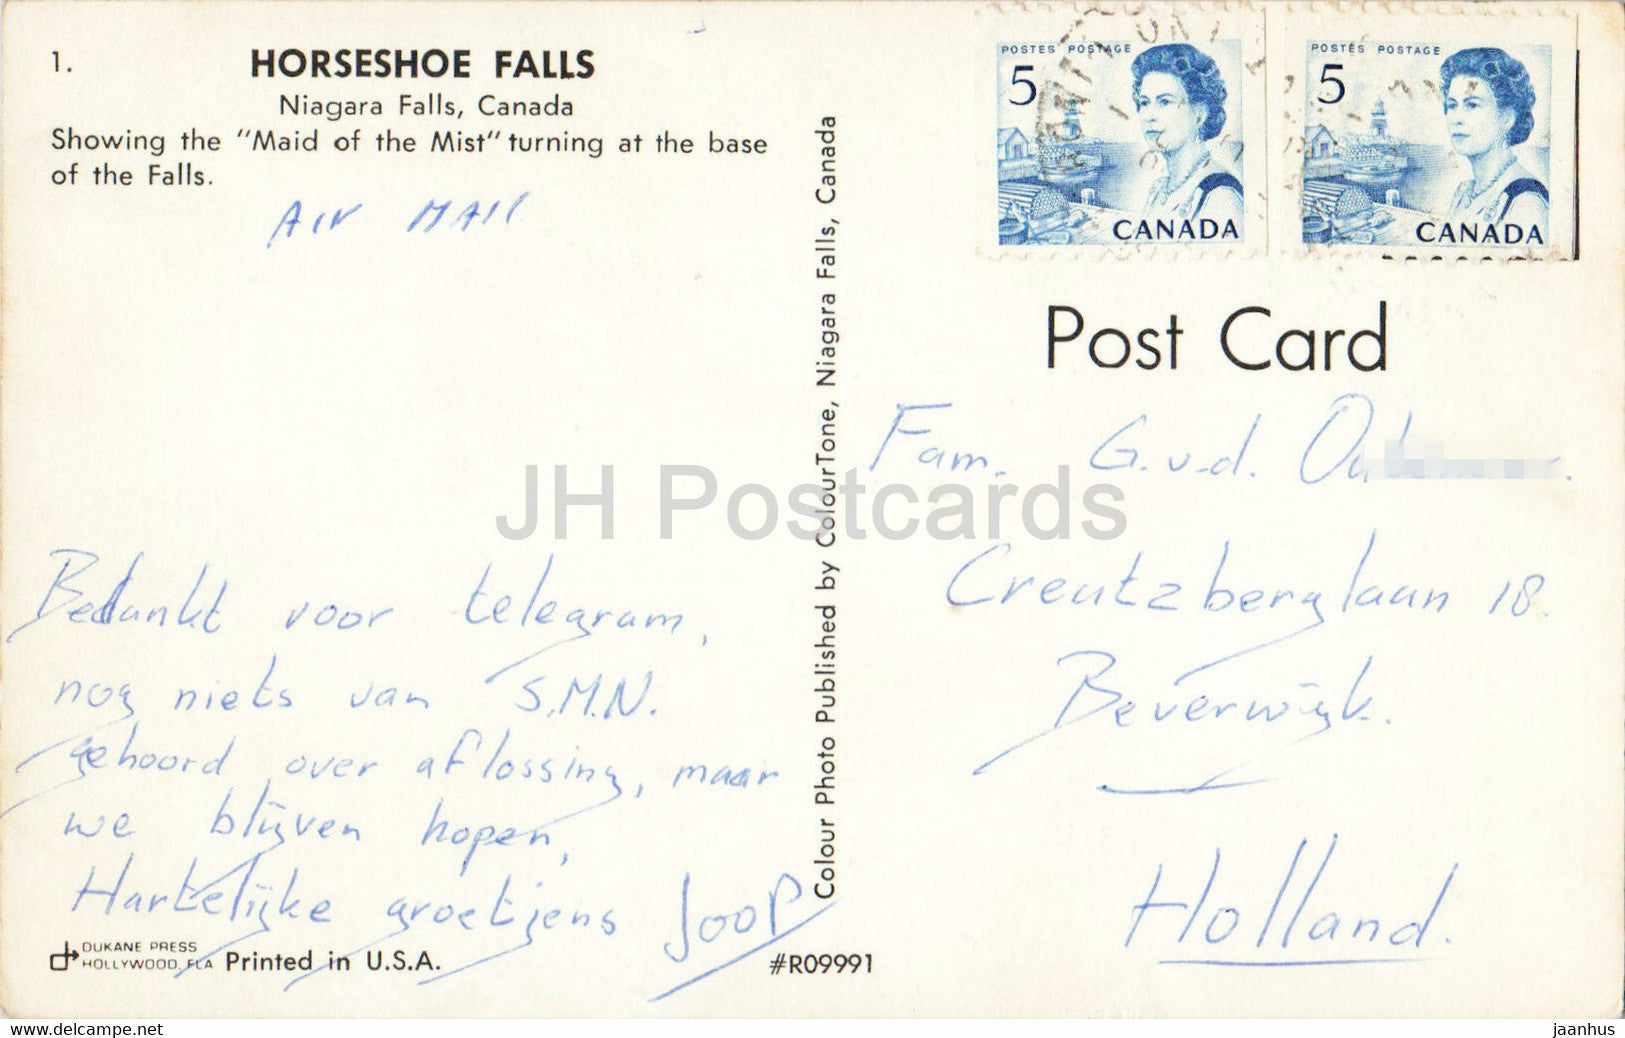 1. HORSESHOE FALLS
Niagara Falls, Canada
Showing the "Maid of the Mist" turning at the base
of the Falls.
AIR MAIL
Bedankt voor telegram,
nog niets van S.M.N.
gehoord over aflossing, maar
we blijven hopen,
Hartelijke groetjens JOOP
DUKANE PRESS
HOLLYWOOD, FLA
Printed in U.S.A.
#R09991
Colour Photo Published by ColourTone, Niagara Falls, Canada
POSTES POSTAGE
5
CANADA
POSTES POSTAGE
5
CANADA
Post Card
Fam. G.v.d.
Creutzberglaan 18.
Beverwijk.
Holland.
JH Postcards
www.delcampe.net
jaanhus